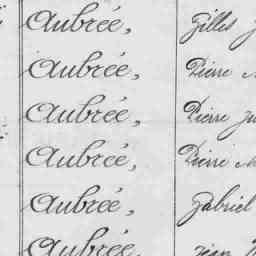 Aubrée, Gilles
Aubrée, Pierre
Aubrée, Pierre
Aubrée, Pierre
Aubrée, Gabriel
Aubrée, Jean